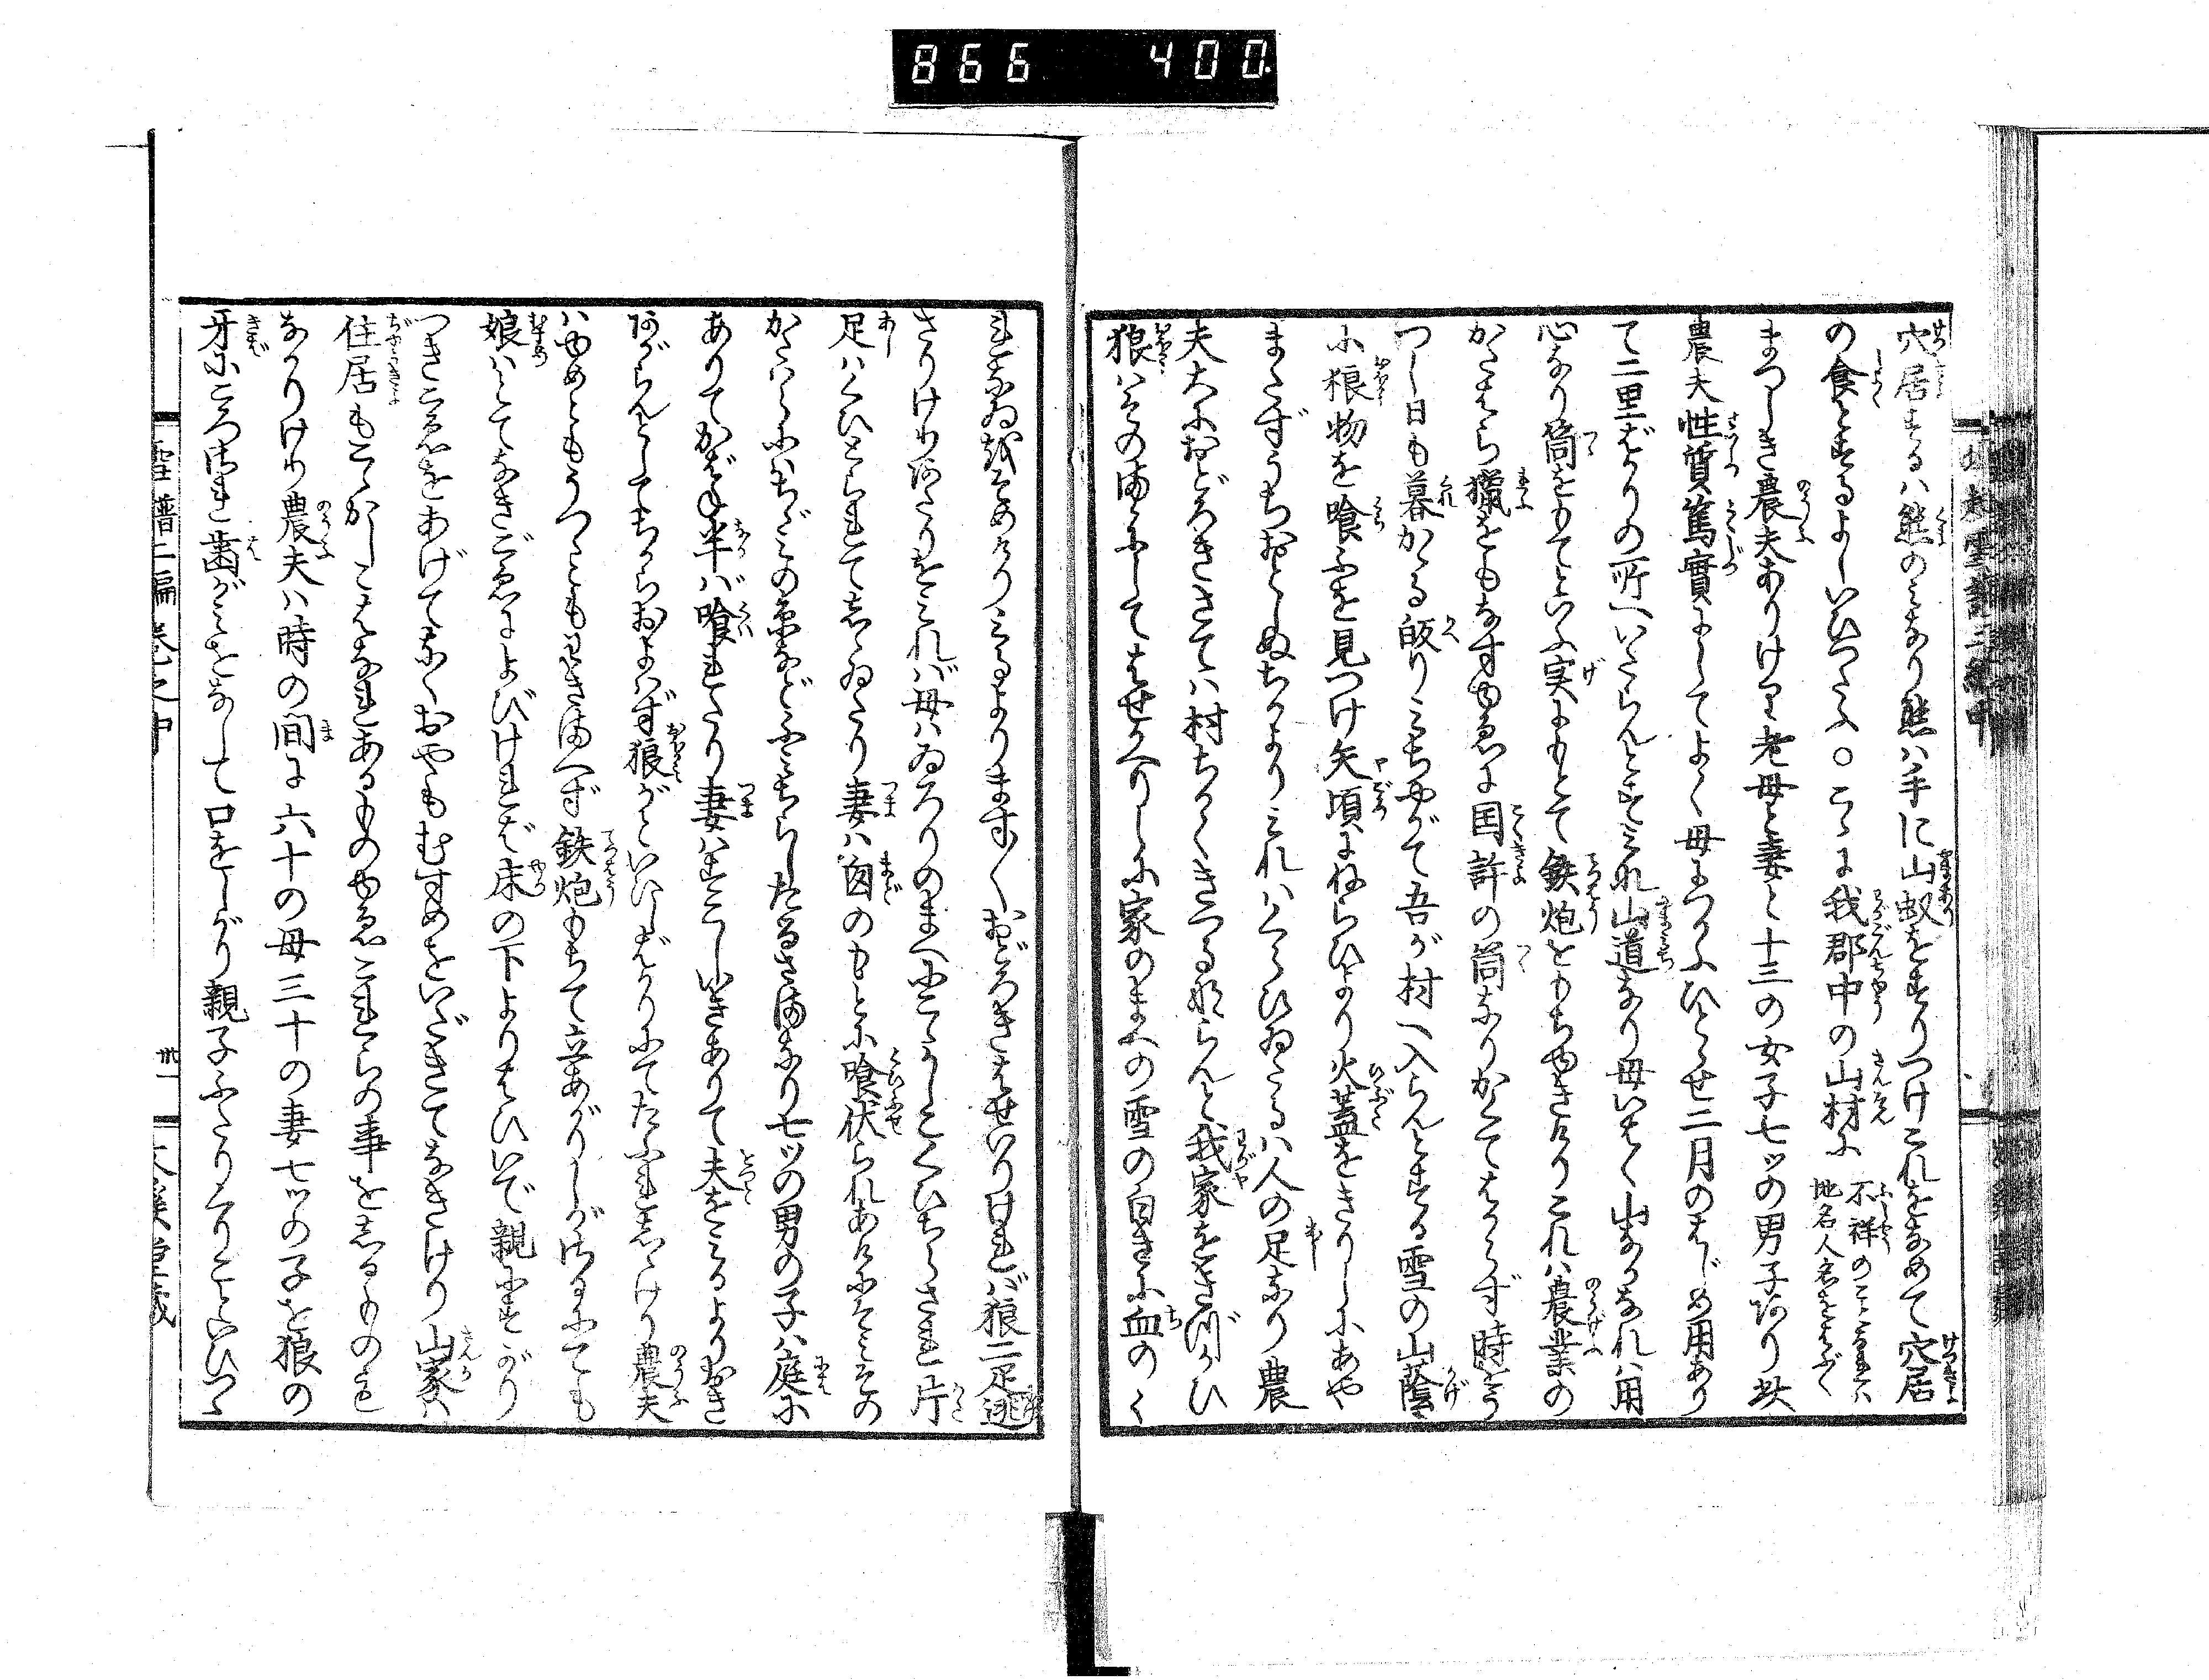 866 400.
穴居するは熊のみなり熊ハ手に山蟻をすりつけこれをなめて穴居
の食とするよしいひつたふ○こゝに我郡中の山村に不祥のことなれば地名人名をはぶく
まづしき農夫ありけり老母と妻と十三の女子七ッの男子あり此
農夫性質篤實にしてよく母につかふひとゝせ二月のはじめ用あり
て二里ばかりの所へいたらんとすみな山道なり母いはく山なかなれハ用
心なり筒をもてといふ実にもとて鉄炮をもちゆきけりこれハ農業の
かたはら猟をもなすゆゑに国許の筒なりかくてはからず時をう
つし日も暮かゝる皈りみちやがて吾が村へ入らんとする雪の山蔭
に狼物を喰ふを見つけ矢頃にねらひより火蓋をきりしにあや
またずうちおとしぬちかよりみれハくらひゐたるハ人の足なり農
夫大におどろきさてハ村ちかくきつるならんと我家をきづかひ
狼ハそのまゝにしてはせかへりしに家のまへの雪の白きに血のく
れなゐをそめけりみるよります〳〵おどろきはせいりければ狼二疋逃
さりけりあたりをみれバ母ハゐろりのまへにこゝかしこくひちらされ片
足ハくひとられてしゝゐたり妻ハ囱のもとに喰伏られあけにそみその
かたハらにハちゞみの糸などふみちらしたるさまなり七ッの男の子ハ庭に
ありてかばね半バ喰れたり妻ハすこしいきありて夫をみるよりおき
あがらんとしてちからおよバず狼がといひしばかりにてたふれしゝけり農夫
ハゆめともうつゝともわきまへず鉄炮もちて立あがりしがさるにても
娘ハとてなきごゑによびければ床の下よりはひいで親にすがり
つきこゑをあげてなくおやもむすめをいだきてなきけり山家ハ
住居もこゝかしこはなれあるものゆゑこれらの事をしるものも
なかりけり農夫ハ時の間に六十の母三十の妻七ッの子を狼の
牙にころされ歯がみをなして口をしがり親子ふたりくりことひつゝ
雪譜二編 巻之中
卅一
文溪堂蔵